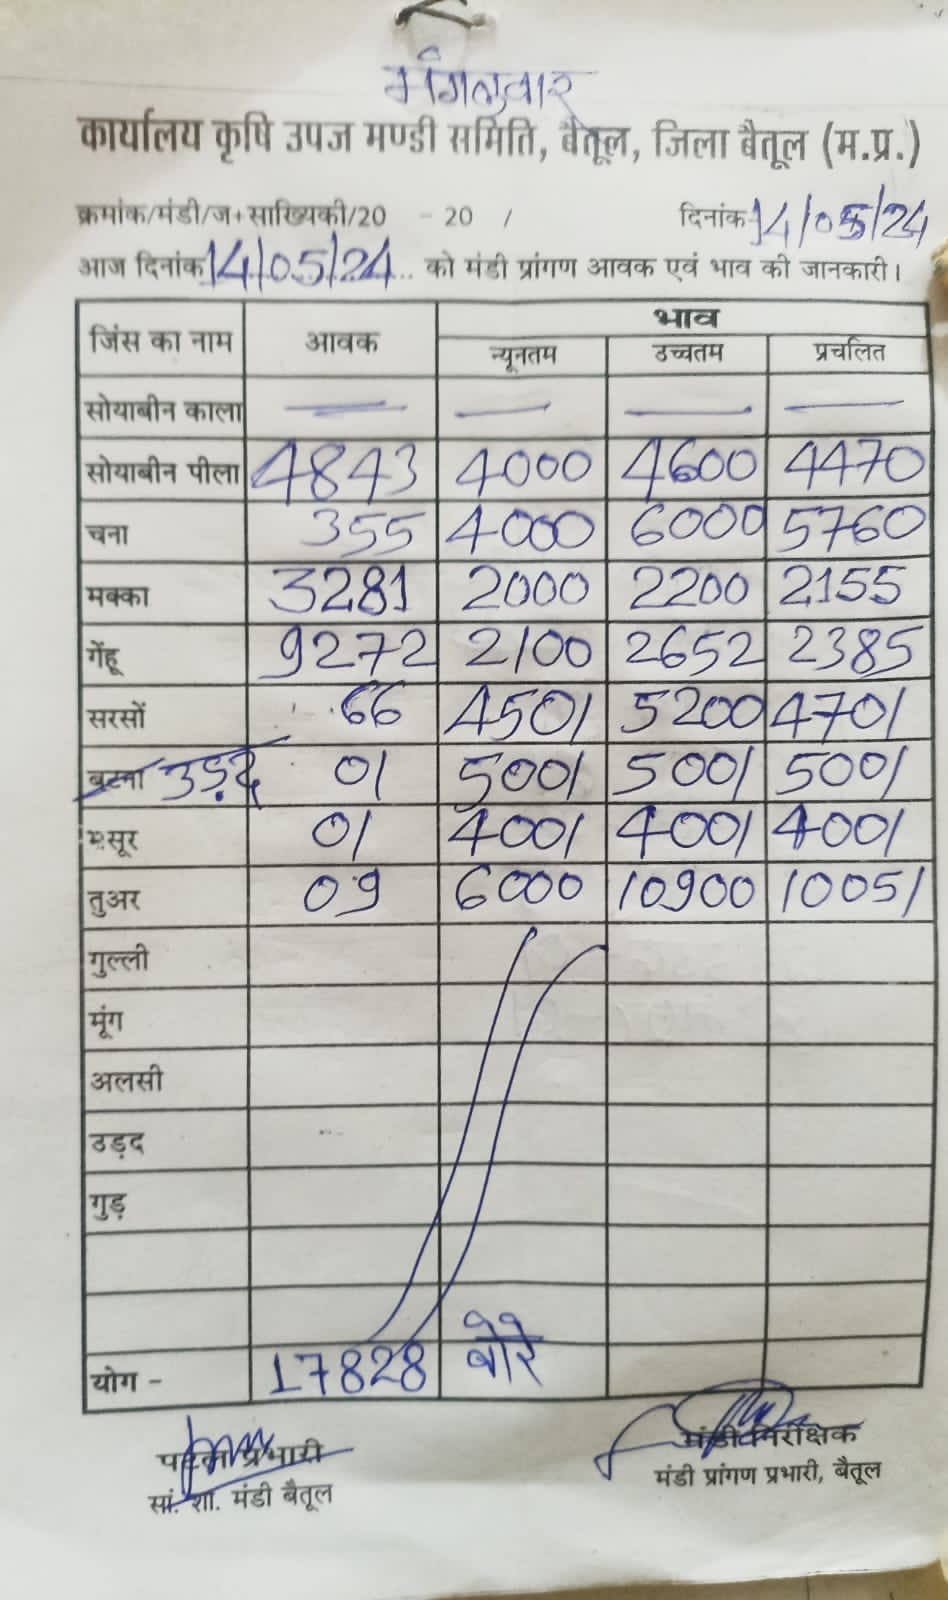 मंगलवार
कार्यालय कृषि उपज मण्डी समिति, बैतूल, जिला बैतूल (म.प्र.)
क्रमांक/मंडी/ज+साख्यिकी/20 - 20 / दिनांक 14/05/24
आज दिनांक 14/05/24 को मंडी प्रांगण आवक एवं भाव की जानकारी।
जिंस का नाम आवक भाव
न्यूनतम उच्चतम प्रचलित
सोयाबीन काला — — — —
सोयाबीन पीला 4843 4000 4600 4470
चना 355 4000 6000 5760
मक्का 3281 2000 2200 2155
गेंहू 9272 2100 2652 2385
सरसों 66 4501 5200 4701
बटना उड़द 01 5001 5001 5001
मसूर 01 4001 4001 4001
तुअर 09 6000 10900 10051
गुल्ली
मूंग
अलसी
उड़द
गुड़
योग - 17828 बोरे
प्रभारी मंडी निरीक्षक
सां. शा. मंडी बैतूल मंडी प्रांगण प्रभारी, बैतूल